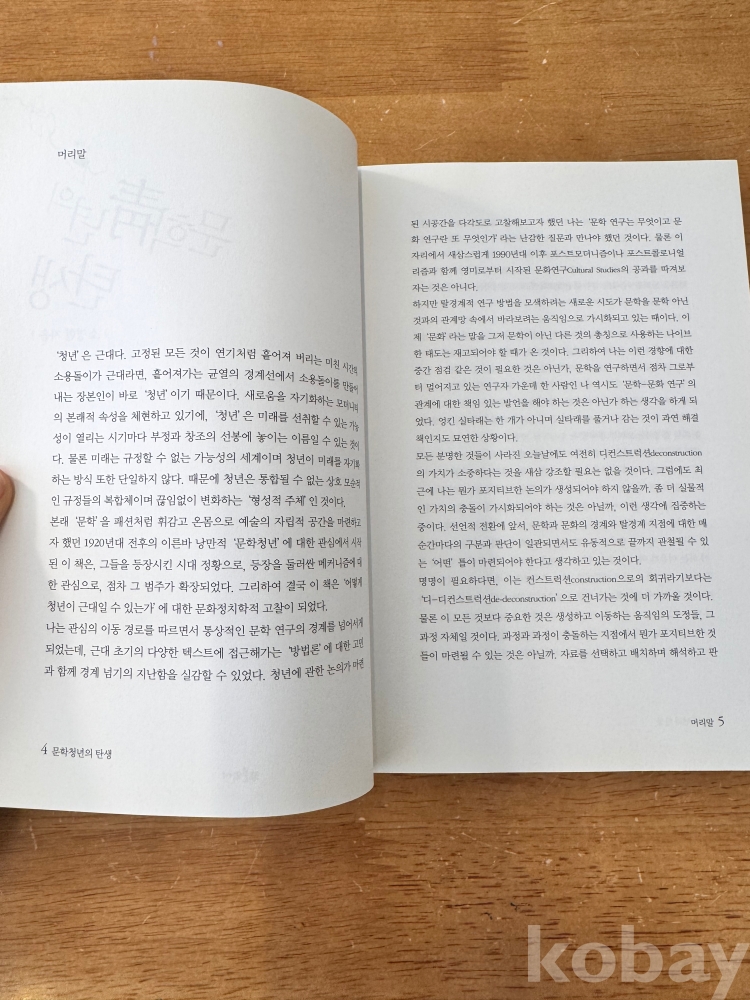 머리말
'청년'은 근대다. 고정된 모든 것이 연기처럼 흩어져 버리는 미친 시간의
소용돌이가 근대라면, 흩어져가는 균열의 경계선에서 소용돌이를 만들어
내는 장본인이 바로 '청년'이기 때문이다. 새로움을 자기화하는 모더니티
의 본래적 속성을 체현하고 있기에, '청년'은 미래를 선취할 수 있는 가능
성이 열리는 시기마다 부정과 창조의 선봉에 놓이는 이름일 수 있는 것이
다. 물론 미래는 규정할 수 없는 가능성의 세계이며 청년이 미래를 자기화
하는 방식 또한 단일하지 않다. 때문에 청년은 통합될 수 없는 상호 모순적
인 규정들의 복합체이며 끊임없이 변화하는 '형성적 주체'인 것이다.
본래 '문학'을 패션처럼 휘감고 온몸으로 예술의 자립적 공간을 마련하고
자 했던 1920년대 전후의 이른바 낭만적 '문학청년'에 대한 관심에서 시작
된 이 책은, 그들을 등장시킨 시대 정황으로, 등장을 둘러싼 메커니즘에 대
한 관심으로, 점차 그 범주가 확장되었다. 그리하여 결국 이 책은 '어떻게
청년이 근대일 수 있는가'에 대한 문화정치학적 고찰이 되었다.
나는 관심의 이동 경로를 따르면서 통상적인 문학 연구의 경계를 넘어서게
되었는데, 근대 초기의 다양한 텍스트에 접근해가는 '방법론'에 대한 고민
과 함께 경계 넘기의 지난함을 실감할 수 있었다. 청년에 관한 논의가 마련
4 문학청년의 탄생
된 시공간을 다각도로 고찰해보고자 했던 나는 '문학 연구는 무엇이고 문
화 연구란 또 무엇인가'라는 난감한 질문과 만나야 했던 것이다. 물론 이
자리에서 새삼스럽게 1990년대 이후 포스트모더니즘이나 포스트콜로니얼
리즘과 함께 영미로부터 시작된 문화연구Cultural Studies의 공과를 따져보
자는 것은 아니다.
하지만 탈경계적 연구 방법을 모색하려는 새로운 시도가 문학을 문학 아닌
것과의 관계망 속에서 바라보려는 움직임으로 가시화되고 있는 때이다. 이
제 '문화'라는 말을 그저 문학이 아닌 다른 것의 총칭으로 사용하는 나이브
한 태도는 재고되어야 할 때가 온 것이다. 그리하여 나는 이런 경향에 대한
중간 점검 같은 것이 필요한 것은 아닌가, 문학을 연구하면서 점차 그로부
터 멀어지고 있는 연구자 가운데 한 사람인 나 역시도 '문학-문화 연구'의
관계에 대한 책임 있는 발언을 해야 하는 것은 아닌가 하는 생각을 하게 되
었다. 엉킨 실타래는 한 개가 아니며 실타래를 풀거나 감는 것이 과연 해결
책인지도 묘연한 상황이다.
모든 분명한 것들이 사라진 오늘날에도 여전히 디컨스트럭션deconstruction
의 가치가 소중하다는 것을 새삼 강조할 필요는 없을 것이다. 그럼에도 최
근에 나는 뭔가 포지티브한 논의가 생성되어야 하지 않을까, 좀 더 실물적
인 가치의 충돌이 가시화되어야 하는 것은 아닐까, 이런 생각에 집중하는
중이다. 선언적 전환에 앞서, 문학과 문화의 경계와 탈경계 지점에 대한 매
순간마다의 구분과 판단이 일관되면서도 유동적으로 끝까지 관철될 수 있
는 '어떤' 틀이 마련되어야 한다고 생각하고 있는 것이다.
명명이 필요하다면, 이는 컨스트럭션construction으로의 회귀라기보다는
'디-디컨스트럭션de-deconstruction'으로 건너가는 것에 더 가까울 것이다.
물론 이 모든 것보다 중요한 것은 생성하고 이동하는 움직임의 도정들, 그
과정 자체일 것이다. 과정과 과정이 충돌하는 지점에서 뭔가 포지티브한 것
들이 마련될 수 있는 것은 아닐까. 자료를 선택하고 배치하며 해석하고 판
머리말 5
kobay